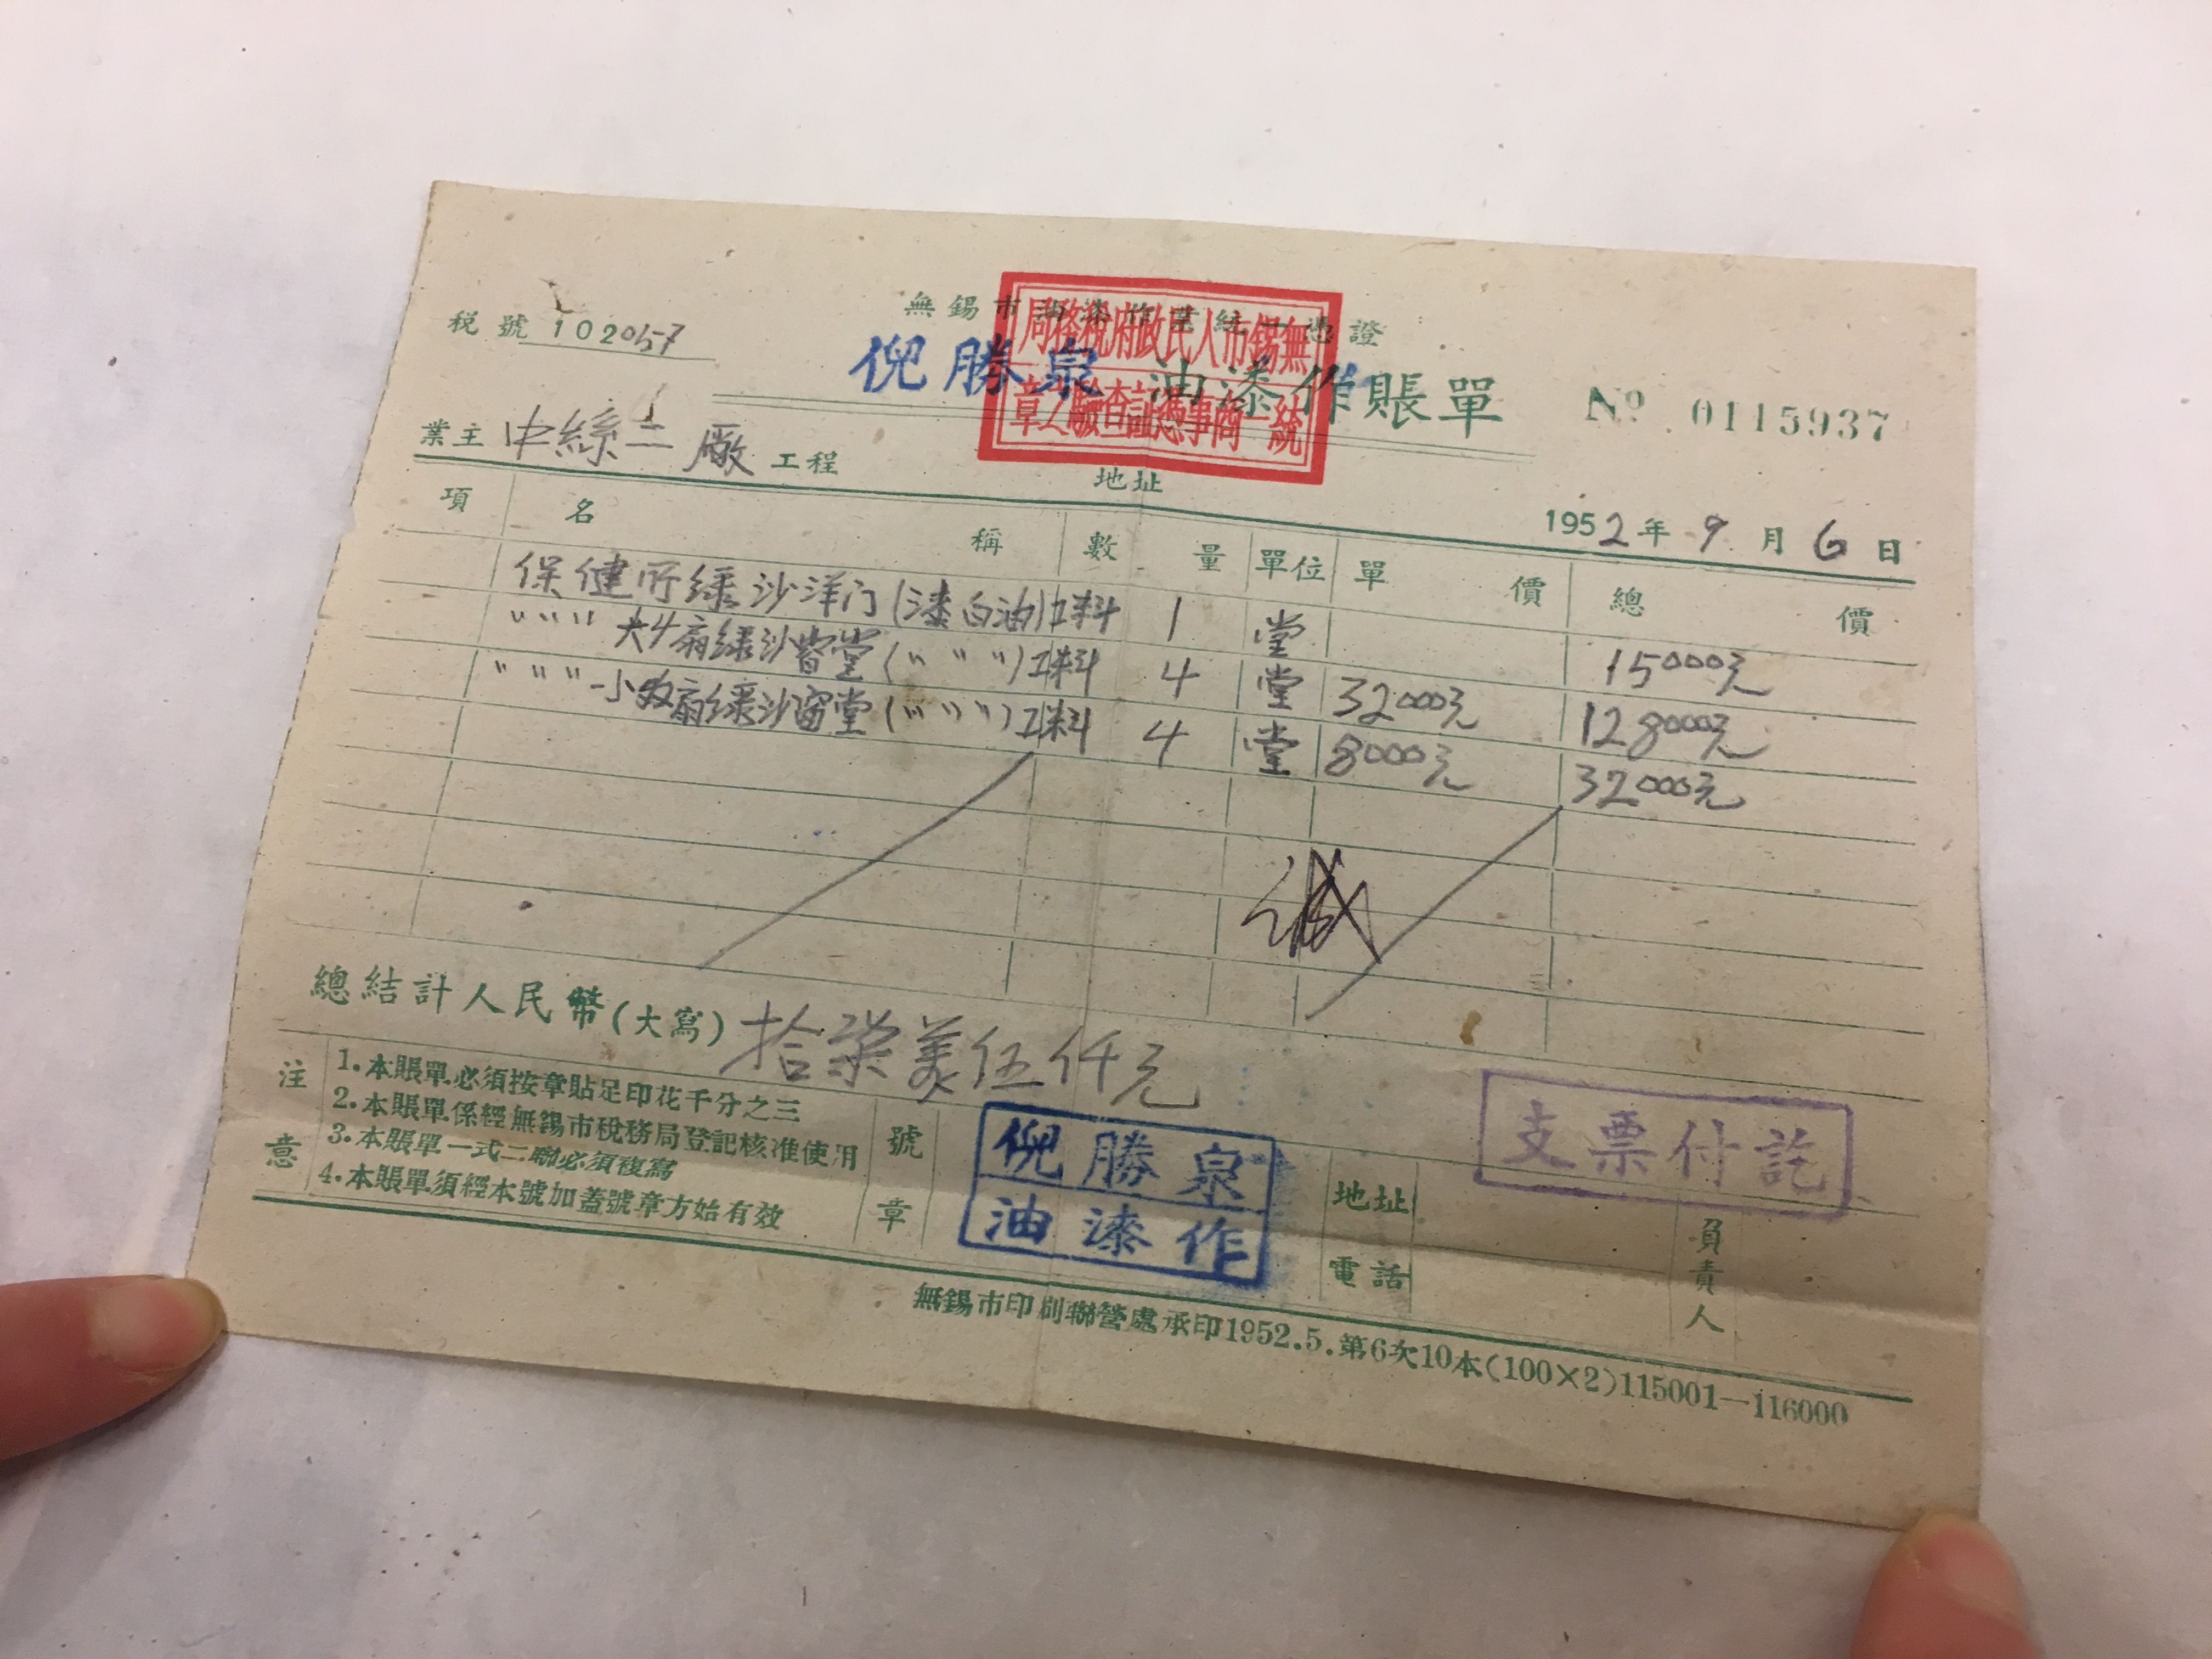 無錫市油漆作業統一憑證
税號 102057
倪勝泉 油漆作賬單 No 0115937
無錫市人民政府稅務局
統一商事憑証查驗之章
業主 中絲二廠 工程 地址
1952年9月6日
項 名稱 數量 單位 單價 總價
保健所綠沙洋门(漆白油)工料 1 堂 15000元
〃〃〃〃 大4扇綠沙窗堂(〃〃〃)工料 4 堂 32000元 128000元
〃〃〃〃 小 扇綠沙窗堂(〃〃〃)工料 4 堂 8000元 32000元
總結計人民幣(大寫) 拾柒萬伍仟元
注意
1.本賬單必須按章貼足印花千分之三
2.本賬單係經無錫市稅務局登記核准使用
3.本賬單一式二聯必須複寫
4.本賬單須經本號加蓋號章方始有效
號章
倪勝泉
油漆作
地址
電話
負責人
支票付訖
無錫市印刷聯營處承印1952.5.第6次10本(100×2)115001—116000